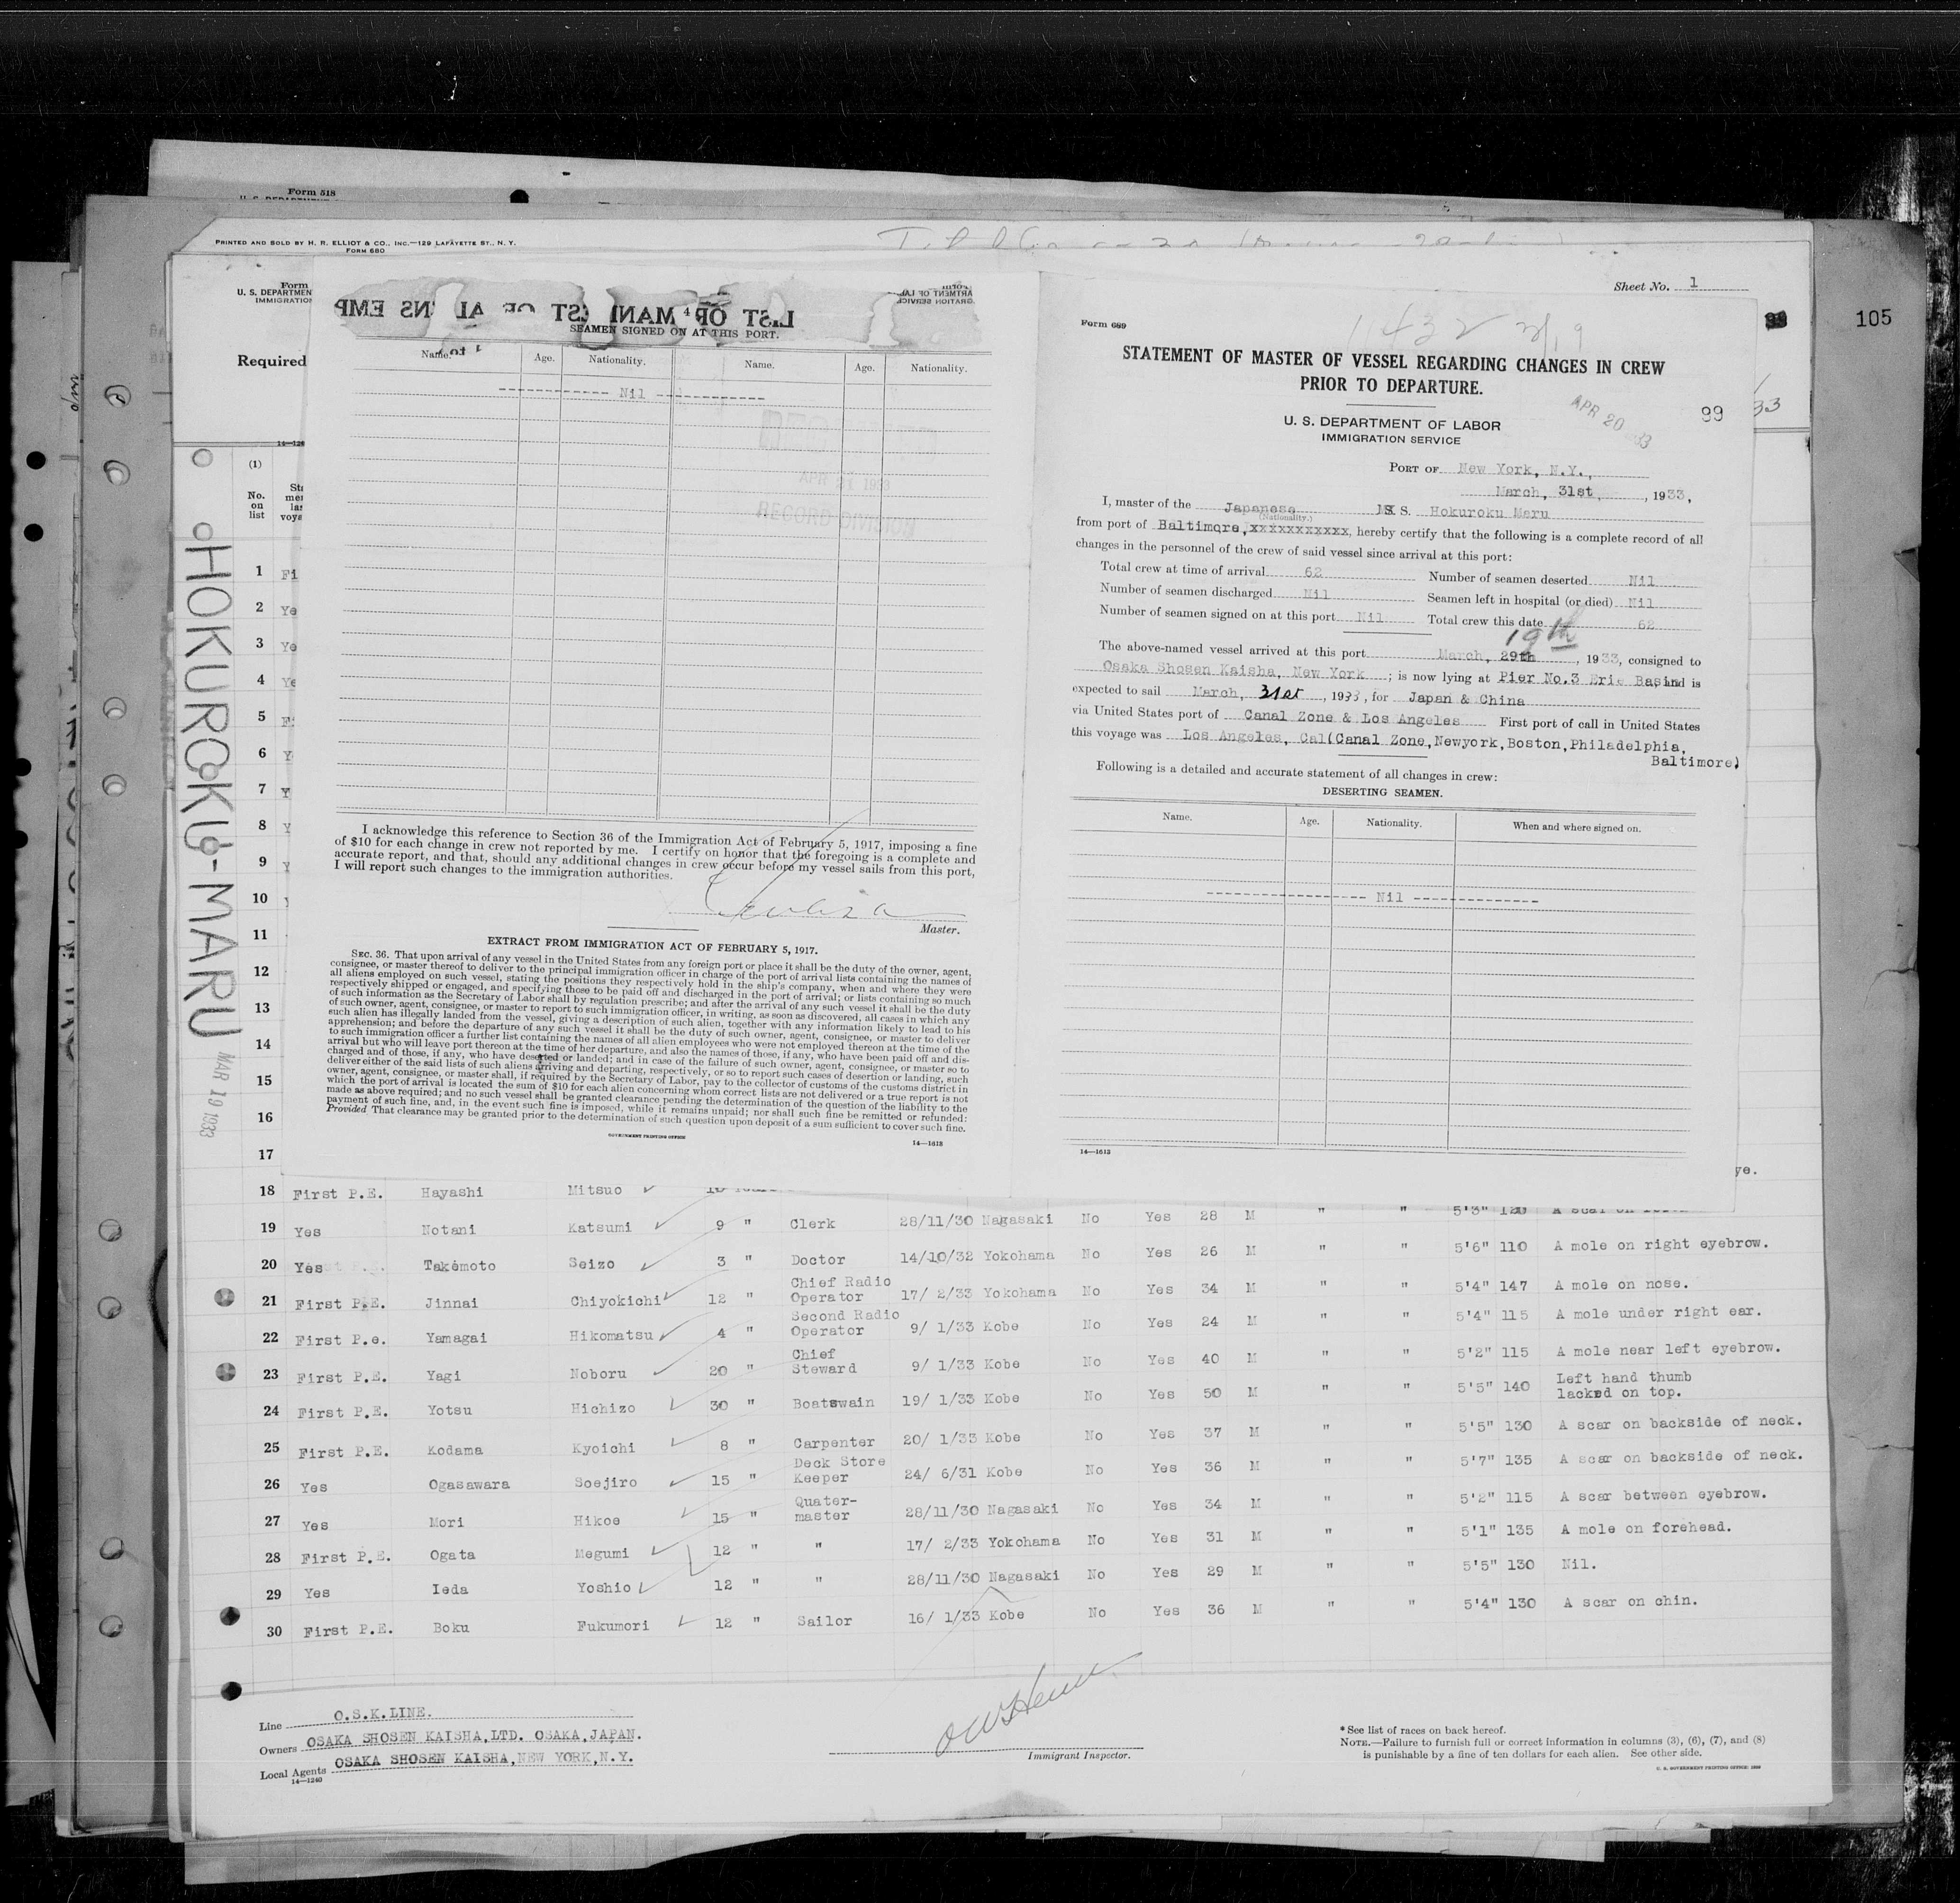 Form 518
PRINTED AND SOLD BY H. R. ELLIOT & CO., INC.—129 LAFAYETTE ST., N. Y.
FORM 680
Sheet No. 1
105
Form
U. S. DEPARTMEN
IMMIGRATION
Required
(1)
No. on list
HOKUROKU-MARU
MAR 19 1933
SEAMEN SIGNED ON AT THIS PORT.
Name. Age. Nationality. Name. Age. Nationality.
Nil
APR 21 1933
RECORD DIVISION
I acknowledge this reference to Section 36 of the Immigration Act of February 5, 1917, imposing a fine
of $10 for each change in crew not reported by me. I certify on honor that the foregoing is a complete and
accurate report, and that, should any additional changes in crew occur before my vessel sails from this port,
I will report such changes to the immigration authorities.
Master.
EXTRACT FROM IMMIGRATION ACT OF FEBRUARY 5, 1917.
SEC. 36. That upon arrival of any vessel in the United States from any foreign port or place it shall be the duty of the owner, agent,
consignee, or master thereof to deliver to the principal immigration officer in charge of the port of arrival lists containing the names of
all aliens employed on such vessel, stating the positions they respectively hold in the ship's company, when and where they were
respectively shipped or engaged, and specifying those to be paid off and discharged in the port of arrival; or lists containing so much
of such information as the Secretary of Labor shall by regulation prescribe; and after the arrival of any such vessel it shall be the duty
of such owner, agent, consignee, or master to report to such immigration officer, in writing, as soon as discovered, all cases in which any
such alien has illegally landed from the vessel, giving a description of such alien, together with any information likely to lead to his
apprehension; and before the departure of any such vessel it shall be the duty of such owner, agent, consignee, or master to deliver
to such immigration officer a further list containing the names of all alien employees who were not employed thereon at the time of the
arrival but who will leave port thereon at the time of her departure, and also the names of those, if any, who have been paid off and dis-
charged and of those, if any, who have deserted or landed; and in case of the failure of such owner, agent, consignee, or master so to
deliver either of the said lists of such aliens arriving and departing, respectively, or so to report such cases of desertion or landing, such
owner, agent, consignee, or master shall, if required by the Secretary of Labor, pay to the collector of customs of the customs district in
which the port of arrival is located the sum of $10 for each alien concerning whom correct lists are not delivered or a true report is not
made as above required; and no such vessel shall be granted clearance pending the determination of the question of the liability to the
payment of such fine, and, in the event such fine is imposed, while it remains unpaid; nor shall such fine be remitted or refunded:
Provided That clearance may be granted prior to the determination of such question upon deposit of a sum sufficient to cover such fine.
GOVERNMENT PRINTING OFFICE 14—1613
Form 689
1432 3/19
STATEMENT OF MASTER OF VESSEL REGARDING CHANGES IN CREW
PRIOR TO DEPARTURE.
APR 20
99
U. S. DEPARTMENT OF LABOR
IMMIGRATION SERVICE
PORT OF New York, N.Y.,
March, 31st, 1933,
I, master of the Japanese M S. Hokuroku Maru
(Nationality.)
from port of Baltimore, xxxxxxxxxxx, hereby certify that the following is a complete record of all
changes in the personnel of the crew of said vessel since arrival at this port:
Total crew at time of arrival 62 Number of seamen deserted Nil
Number of seamen discharged Nil Seamen left in hospital (or died) Nil
Number of seamen signed on at this port Nil Total crew this date 62
19th
The above-named vessel arrived at this port March, 29th, 1933, consigned to
Osaka Shosen Kaisha, New York; is now lying at Pier No.3 Erie Basin and is
expected to sail March, 31st, 1933, for Japan & China
via United States port of Canal Zone & Los Angeles First port of call in United States
this voyage was Los Angeles, Cal(Canal Zone,Newyork,Boston,Philadelphia,
Baltimore)
Following is a detailed and accurate statement of all changes in crew:
DESERTING SEAMEN.
Name. Age. Nationality. When and where signed on.
Nil
14—1613
1 Fi
2 Ye
3 Ye
4 Ye
5
6 Y
7 Y
8 Y
9 Y
10
11
12
13
14
15
16
17 ye.
18 First P.E. Hayashi Mitsuo
19 Yes Notani Katsumi 9 " Clerk 28/11/30 Nagasaki No Yes 28 M " " 5'3" 120
20 Yes Takemoto Seizo 3 " Doctor 14/10/32 Yokohama No Yes 26 M " " 5'6" 110 A mole on right eyebrow.
21 First P.E. Jinnai Chiyokichi 12 " Chief Radio Operator 17/ 2/33 Yokohama No Yes 34 M " " 5'4" 147 A mole on nose.
22 First P.e. Yamagai Hikomatsu 4 " Second Radio Operator 9/ 1/33 Kobe No Yes 24 M " " 5'4" 115 A mole under right ear.
23 First P.E. Yagi Noboru 20 " Chief Steward 9/ 1/33 Kobe No Yes 40 M " " 5'2" 115 A mole near left eyebrow.
24 First P.E. Yotsu Hichizo 30 " Boatswain 19/ 1/33 Kobe No Yes 50 M " " 5'5" 140 Left hand thumb lacked on top.
25 First P.E. Kodama Kyoichi 8 " Carpenter 20/ 1/33 Kobe No Yes 37 M " " 5'5" 130 A scar on backside of neck.
26 Yes Ogasawara Soejiro 15 " Deck Store Keeper 24/ 6/31 Kobe No Yes 36 M " " 5'7" 135 A scar on backside of neck.
27 Yes Mori Hikoe 15 " Quater-master 28/11/30 Nagasaki No Yes 34 M " " 5'2" 115 A scar between eyebrow.
28 First P.E. Ogata Megumi 12 " " 17/ 2/33 Yokohama No Yes 31 M " " 5'1" 135 A mole on forehead.
29 Yes Ieda Yoshio 12 " " 28/11/30 Nagasaki No Yes 29 M " " 5'5" 130 Nil.
30 First P.E. Boku Fukumori 12 " Sailor 16/ 1/33 Kobe No Yes 36 M " " 5'4" 130 A scar on chin.
Line O.S.K.LINE.
Owners OSAKA SHOSEN KAISHA,LTD. OSAKA,JAPAN.
Local Agents OSAKA SHOSEN KAISHA,NEW YORK,N.Y.
14—1240
Immigrant Inspector.
*See list of races on back hereof.
NOTE.—Failure to furnish full or correct information in columns (3), (6), (7), and (8)
is punishable by a fine of ten dollars for each alien. See other side.